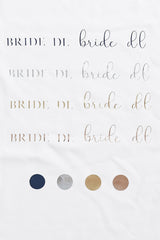 BRIDE DL bride dl
BRIDE DL bride dl
BRIDE DL bride dl
BRIDE DL bride dl